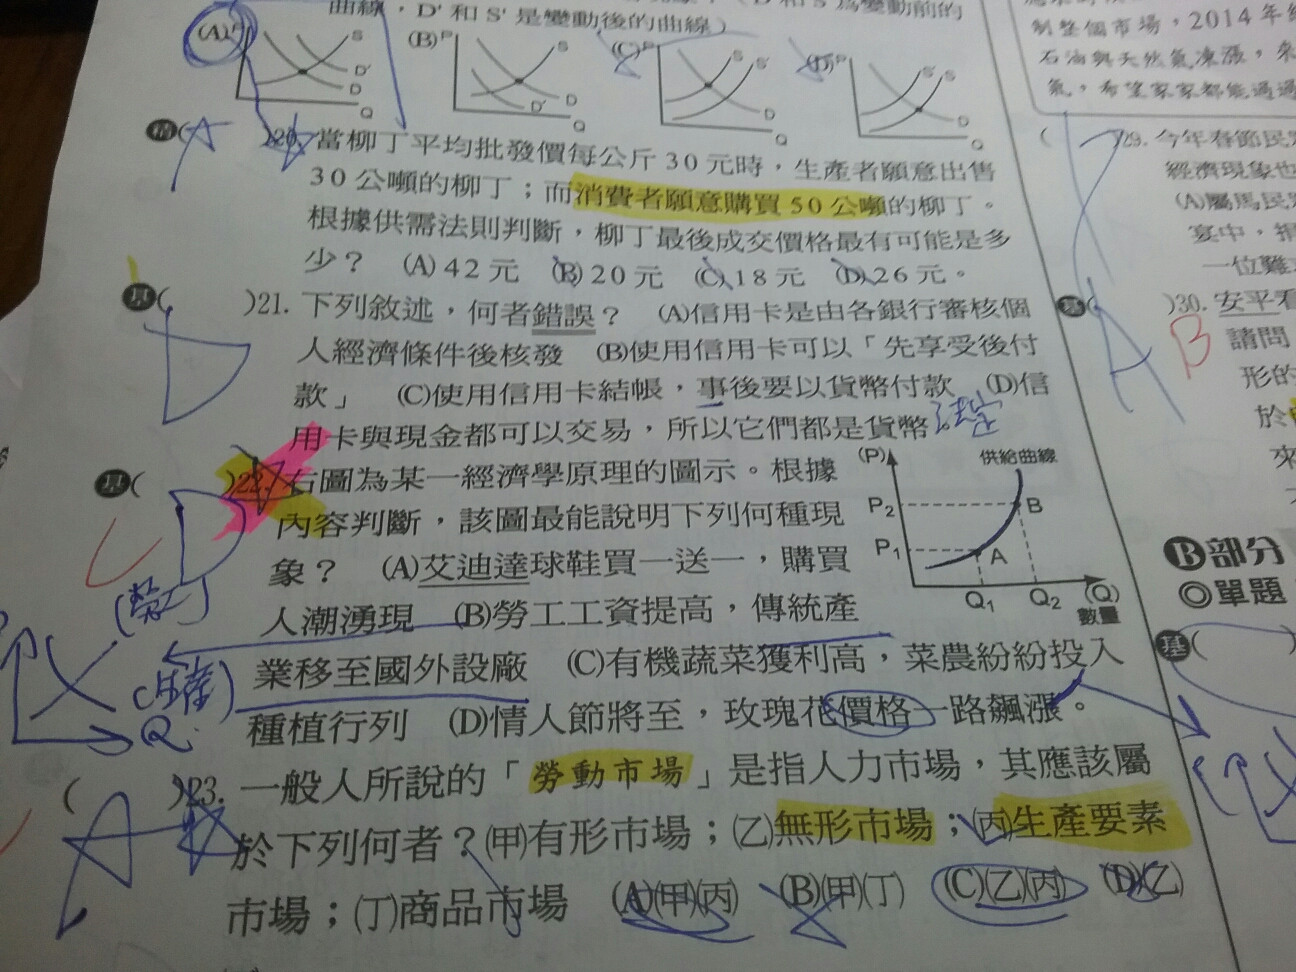 曲線，D' 和 S' 是變動後的曲線）
(A) P S D' D Q (B) P S D' D Q (C) P S S' D Q (D) P S' S D Q
A )20. 當柳丁平均批發價每公斤 30 元時，生產者願意出售
30 公噸的柳丁；而消費者願意購買 50 公噸的柳丁。
根據供需法則判斷，柳丁最後成交價格最有可能是多
少？ (A) 42 元 (B) 20 元 (C) 18 元 (D) 26 元。
基( D )21. 下列敘述，何者錯誤？ (A)信用卡是由各銀行審核個
人經濟條件後核發 (B)使用信用卡可以「先享受後付
款」 (C)使用信用卡結帳，事後要以貨幣付款 (D)信
用卡與現金都可以交易，所以它們都是貨幣。
法定
基( D )22. 右圖為某一經濟學原理的圖示。根據
C
內容判斷，該圖最能說明下列何種現
象？ (A)艾迪達球鞋買一送一，購買
人潮湧現 (B)勞工工資提高，傳統產
業移至國外設廠 (C)有機蔬菜獲利高，菜農紛紛投入
種植行列 (D)情人節將至，玫瑰花價格一路飆漲。
(P) 供給曲線
P2 B
P1 A
Q1 Q2 (Q)
數量
(勞工)
Q
( A )23. 一般人所說的「勞動市場」是指人力市場，其應該屬
於下列何者？(甲)有形市場；(乙)無形市場；(丙)生產要素
市場；(丁)商品市場 (A)(甲)(丙) (B)(甲)(丁) (C)(乙)(丙) (D)(乙)
制整個市場，2014 年
石油與天然氣凍漲，來
氣，希望家家都能過過
( )29. 今年春節民
經濟現象也
(A)屬馬民
宴中，捐
一位難
基( A )30. 安平看
B
請問
形的
於
來
B部分
◎單題
基( )